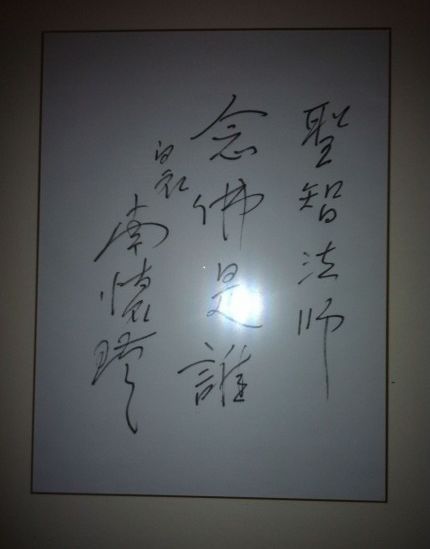 聖智法师
念佛是誰
白衣
南懷瑾